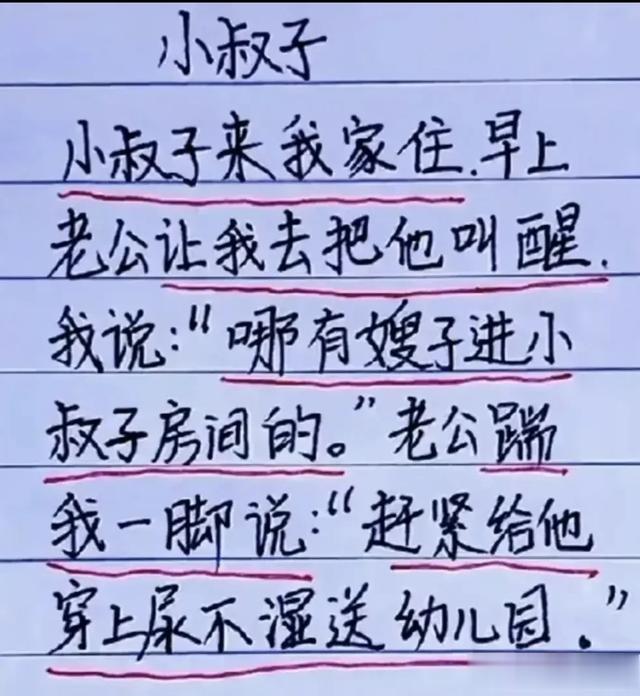 小叔子
小叔子来我家住.早上
老公让我去把他叫醒.
我说:“哪有嫂子进小
叔子房间的。”老公踹
我一脚说:“赶紧给他
穿上尿不湿送幼儿园.”